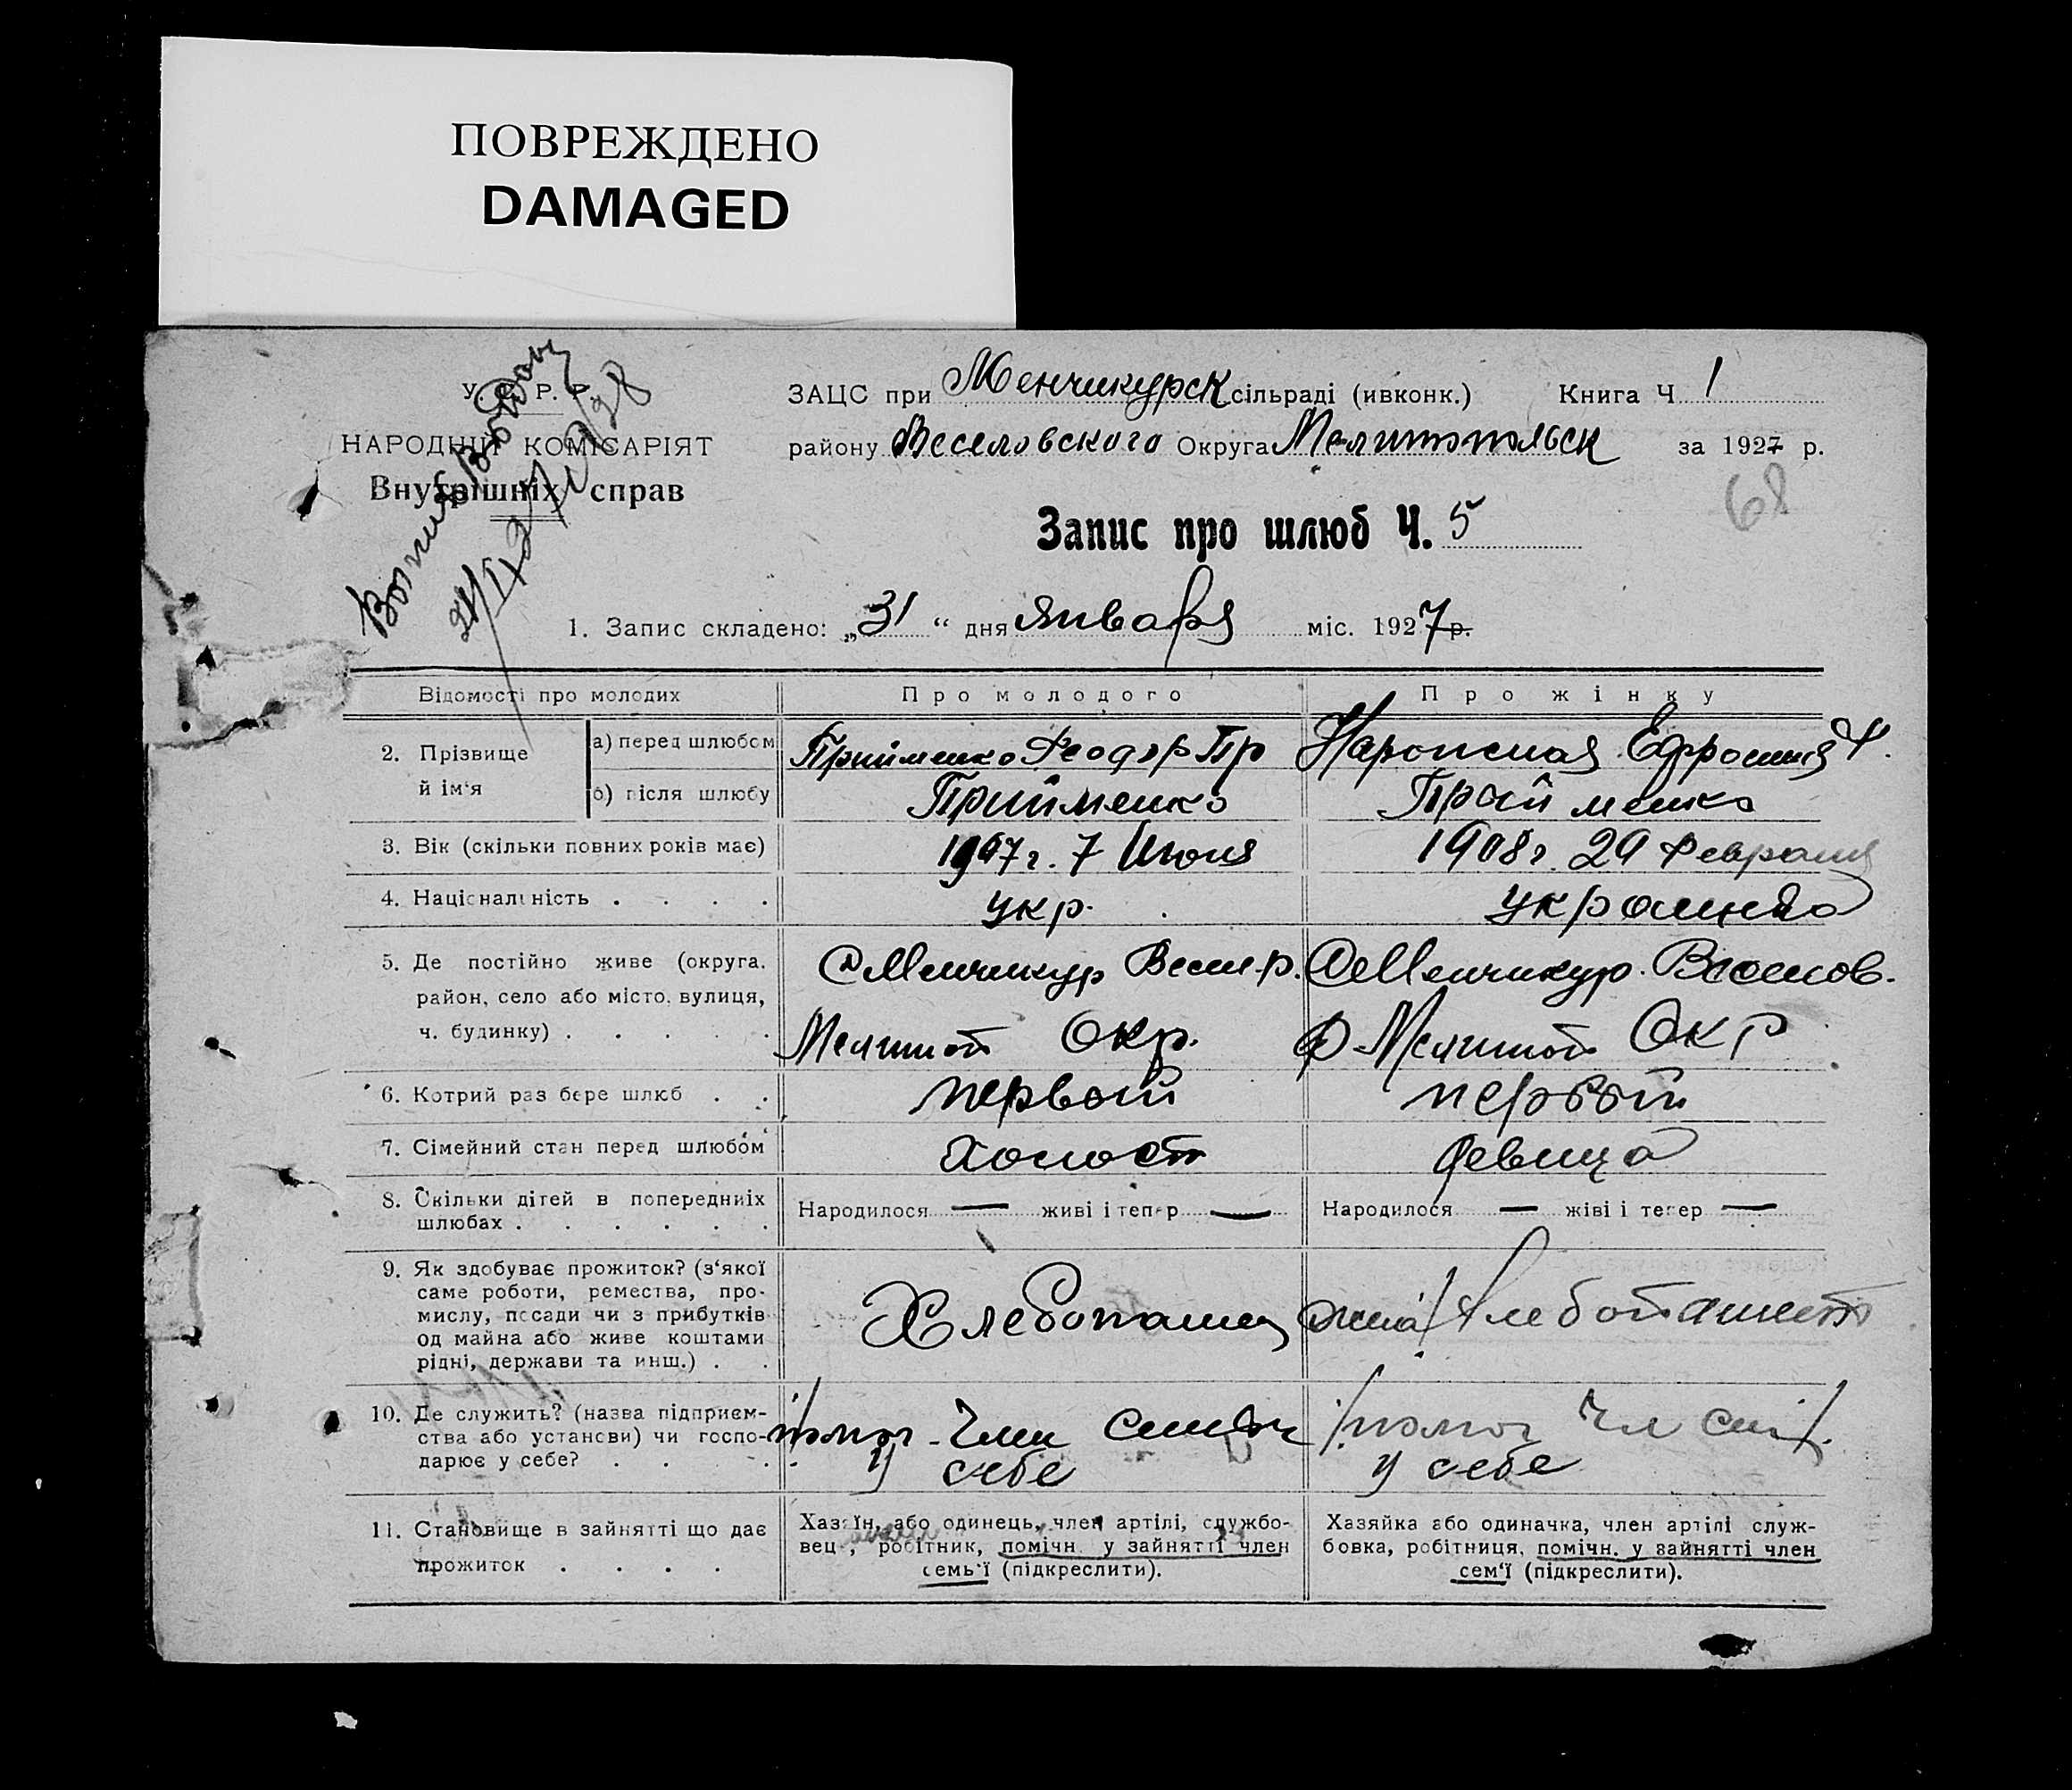 ПОВРЕЖДЕНО
DAMAGED
У. С. Р. Р.
НАРОДНІЙ КОМІСАРІЯТ
Внутрішніх справ
ЗАЦС при Менчикурск сільраді (ивконк.) Книга Ч. 1
району Веселовского Округа Мелитопольск за 1927 р.
68
Запис про шлюб Ч. 5
1. Запис складено: „31“ дня Января міс. 1927 р.
Відомості про молодих Про молодого Про жінку
2. Прізвище й ім'я
а) перед шлюбом Прийменко Феодор Пр Ефросиния
б) після шлюбу Прийменко Прийменко
3. Вік (скільки повних років має) 1907 г. 7 Июня 1908 г. 29 Февраля
4. Національність . . . . укр. украинка
5. Де постійно живе (округа, С Менчикур Весел. р. С Менчикур. Веселов.
район, село або місто, вулиця,
ч. будинку) . . . . . Мелитоп Окр. Р Мелитоп Окр
6. Котрий раз бере шлюб . . первый первый
7. Сімейний стан перед шлюбом холост девица
8. Скільки дітей в попередниіх
шлюбах . . . . . . Народилося — живі і тепер — Народилося — жіві і тепер —
9. Як здобуває прожиток? (з'якої
саме роботи, ремества, про-
мислу, посади чи з прибутків Хлебопашец
од майна або живе коштами
рідні, держави та инш.) . .
10. Де служить? (назва підприєм-
ства або установи) чи госпо- помог. Член семьи помог Чл сем
дарює у себе? . . . . . у себе у себе
11. Становище в зайнятті що дає
прожиток . . . .
Хазяїн, або одинець, член артілі, службо-
вець, робітник, помічн. у зайнятті член
семь'ї (підкреслити).
Хазяйка або одиначка, член артілі служ-
бовка, робітниця, помічн. у зайнятті член
сем'ї (підкреслити).